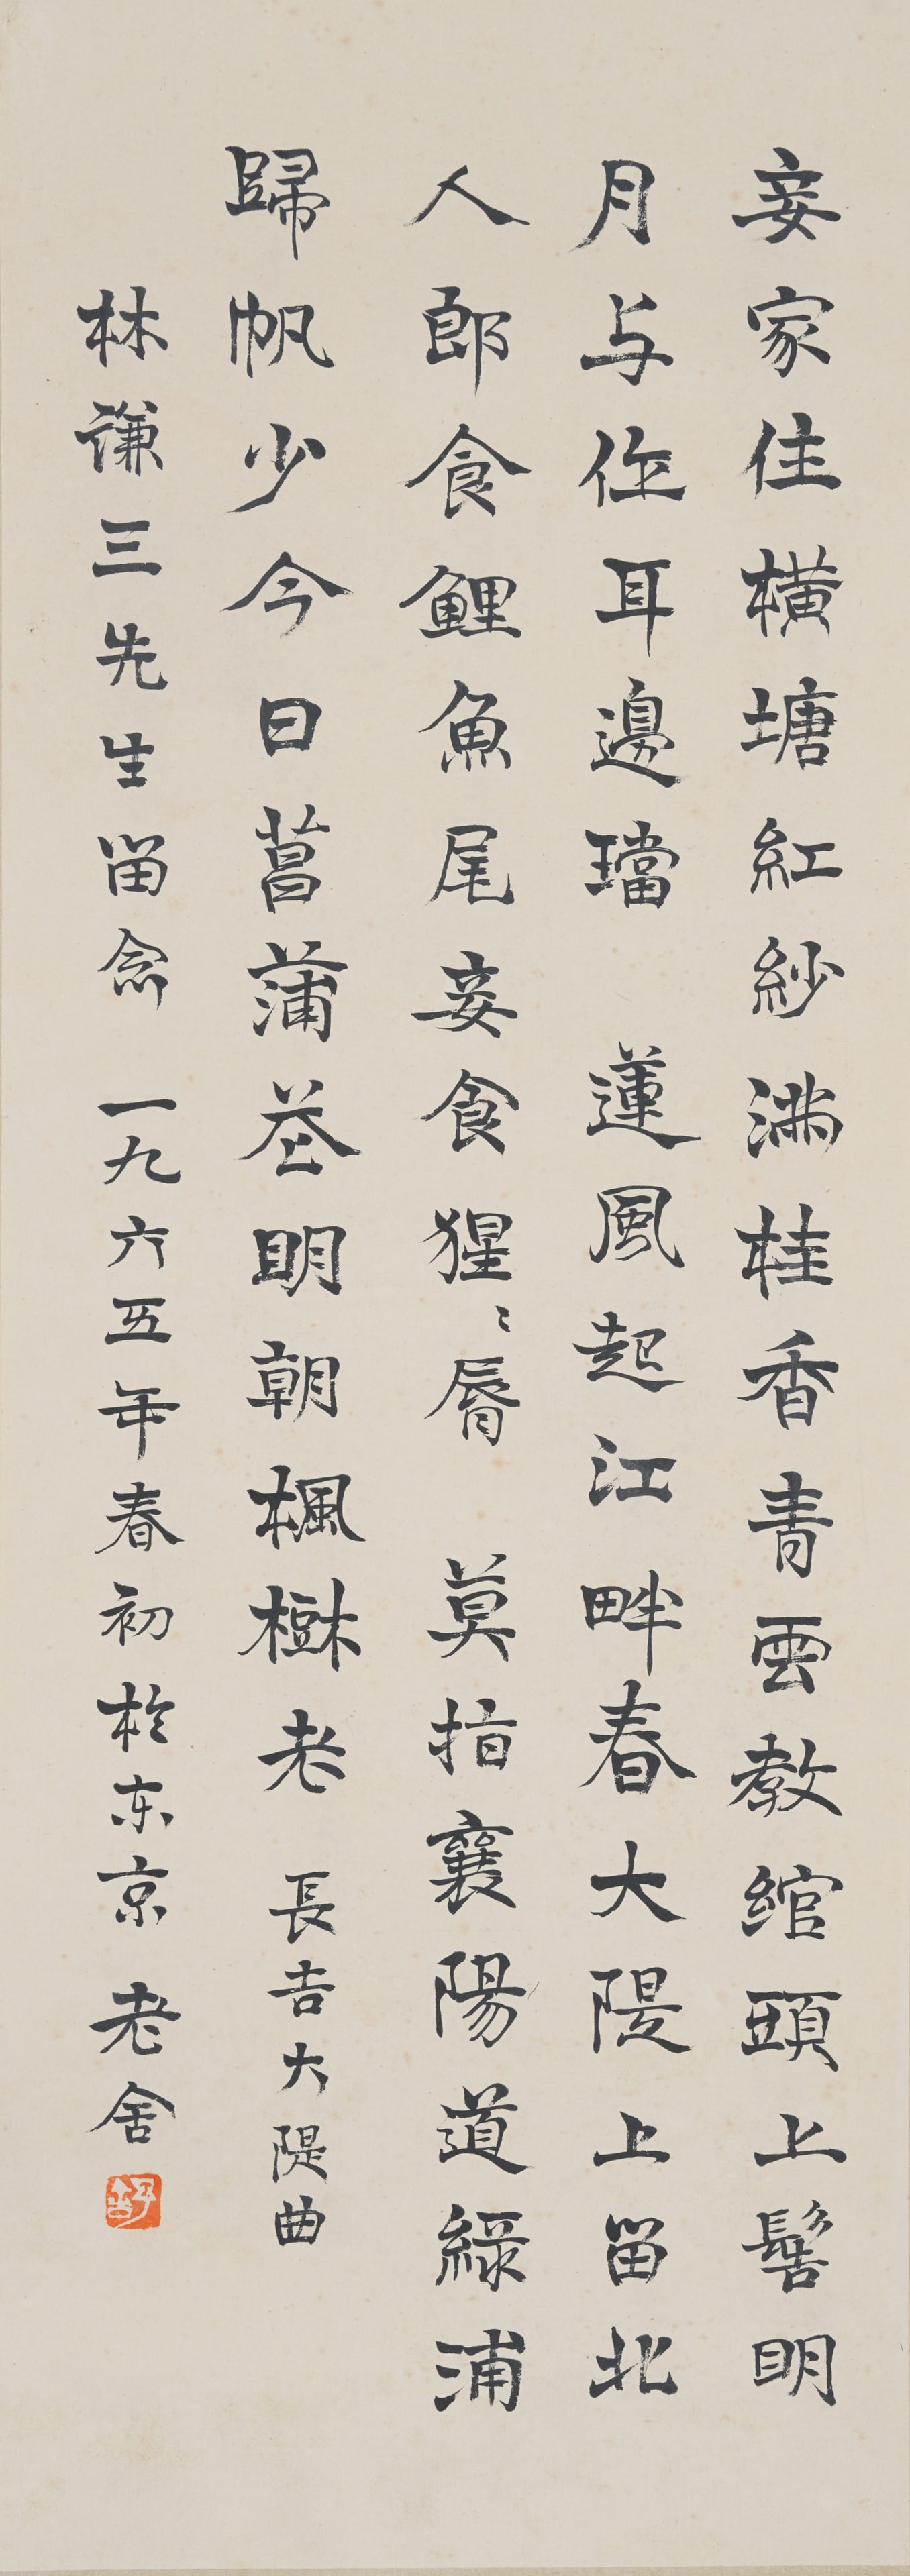 妾家住橫塘紅紗滿桂香青雲教綰頭上髻明
月与作耳邊璫 蓮風起江畔春大隄上留北
人郎食鯉魚尾妾食猩〻脣 莫指襄陽道綠浦
歸帆少今日菖蒲花明朝楓樹老 長吉大隄曲
林謙三先生留念 一九六五年春初於东京 老舍
舒